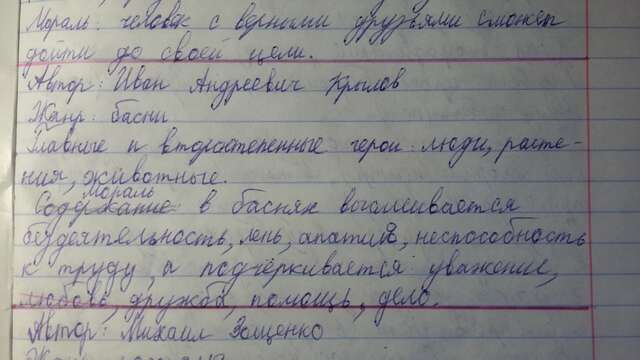 Мораль: человек с верными друзьями сможет
дойти до своей цели.
Автор: Иван Андреевич Крылов
Жанр: басни
Главные и второстепенные герои: люди, расте-
ния, животные.
Мораль
Содержание: в баснях
бездеятельность, лень, апатия, неспособность
к труду, а подчёркивается уважение,
любовь, дружба, помощь, дело.
Автор: Михаил Зощенко